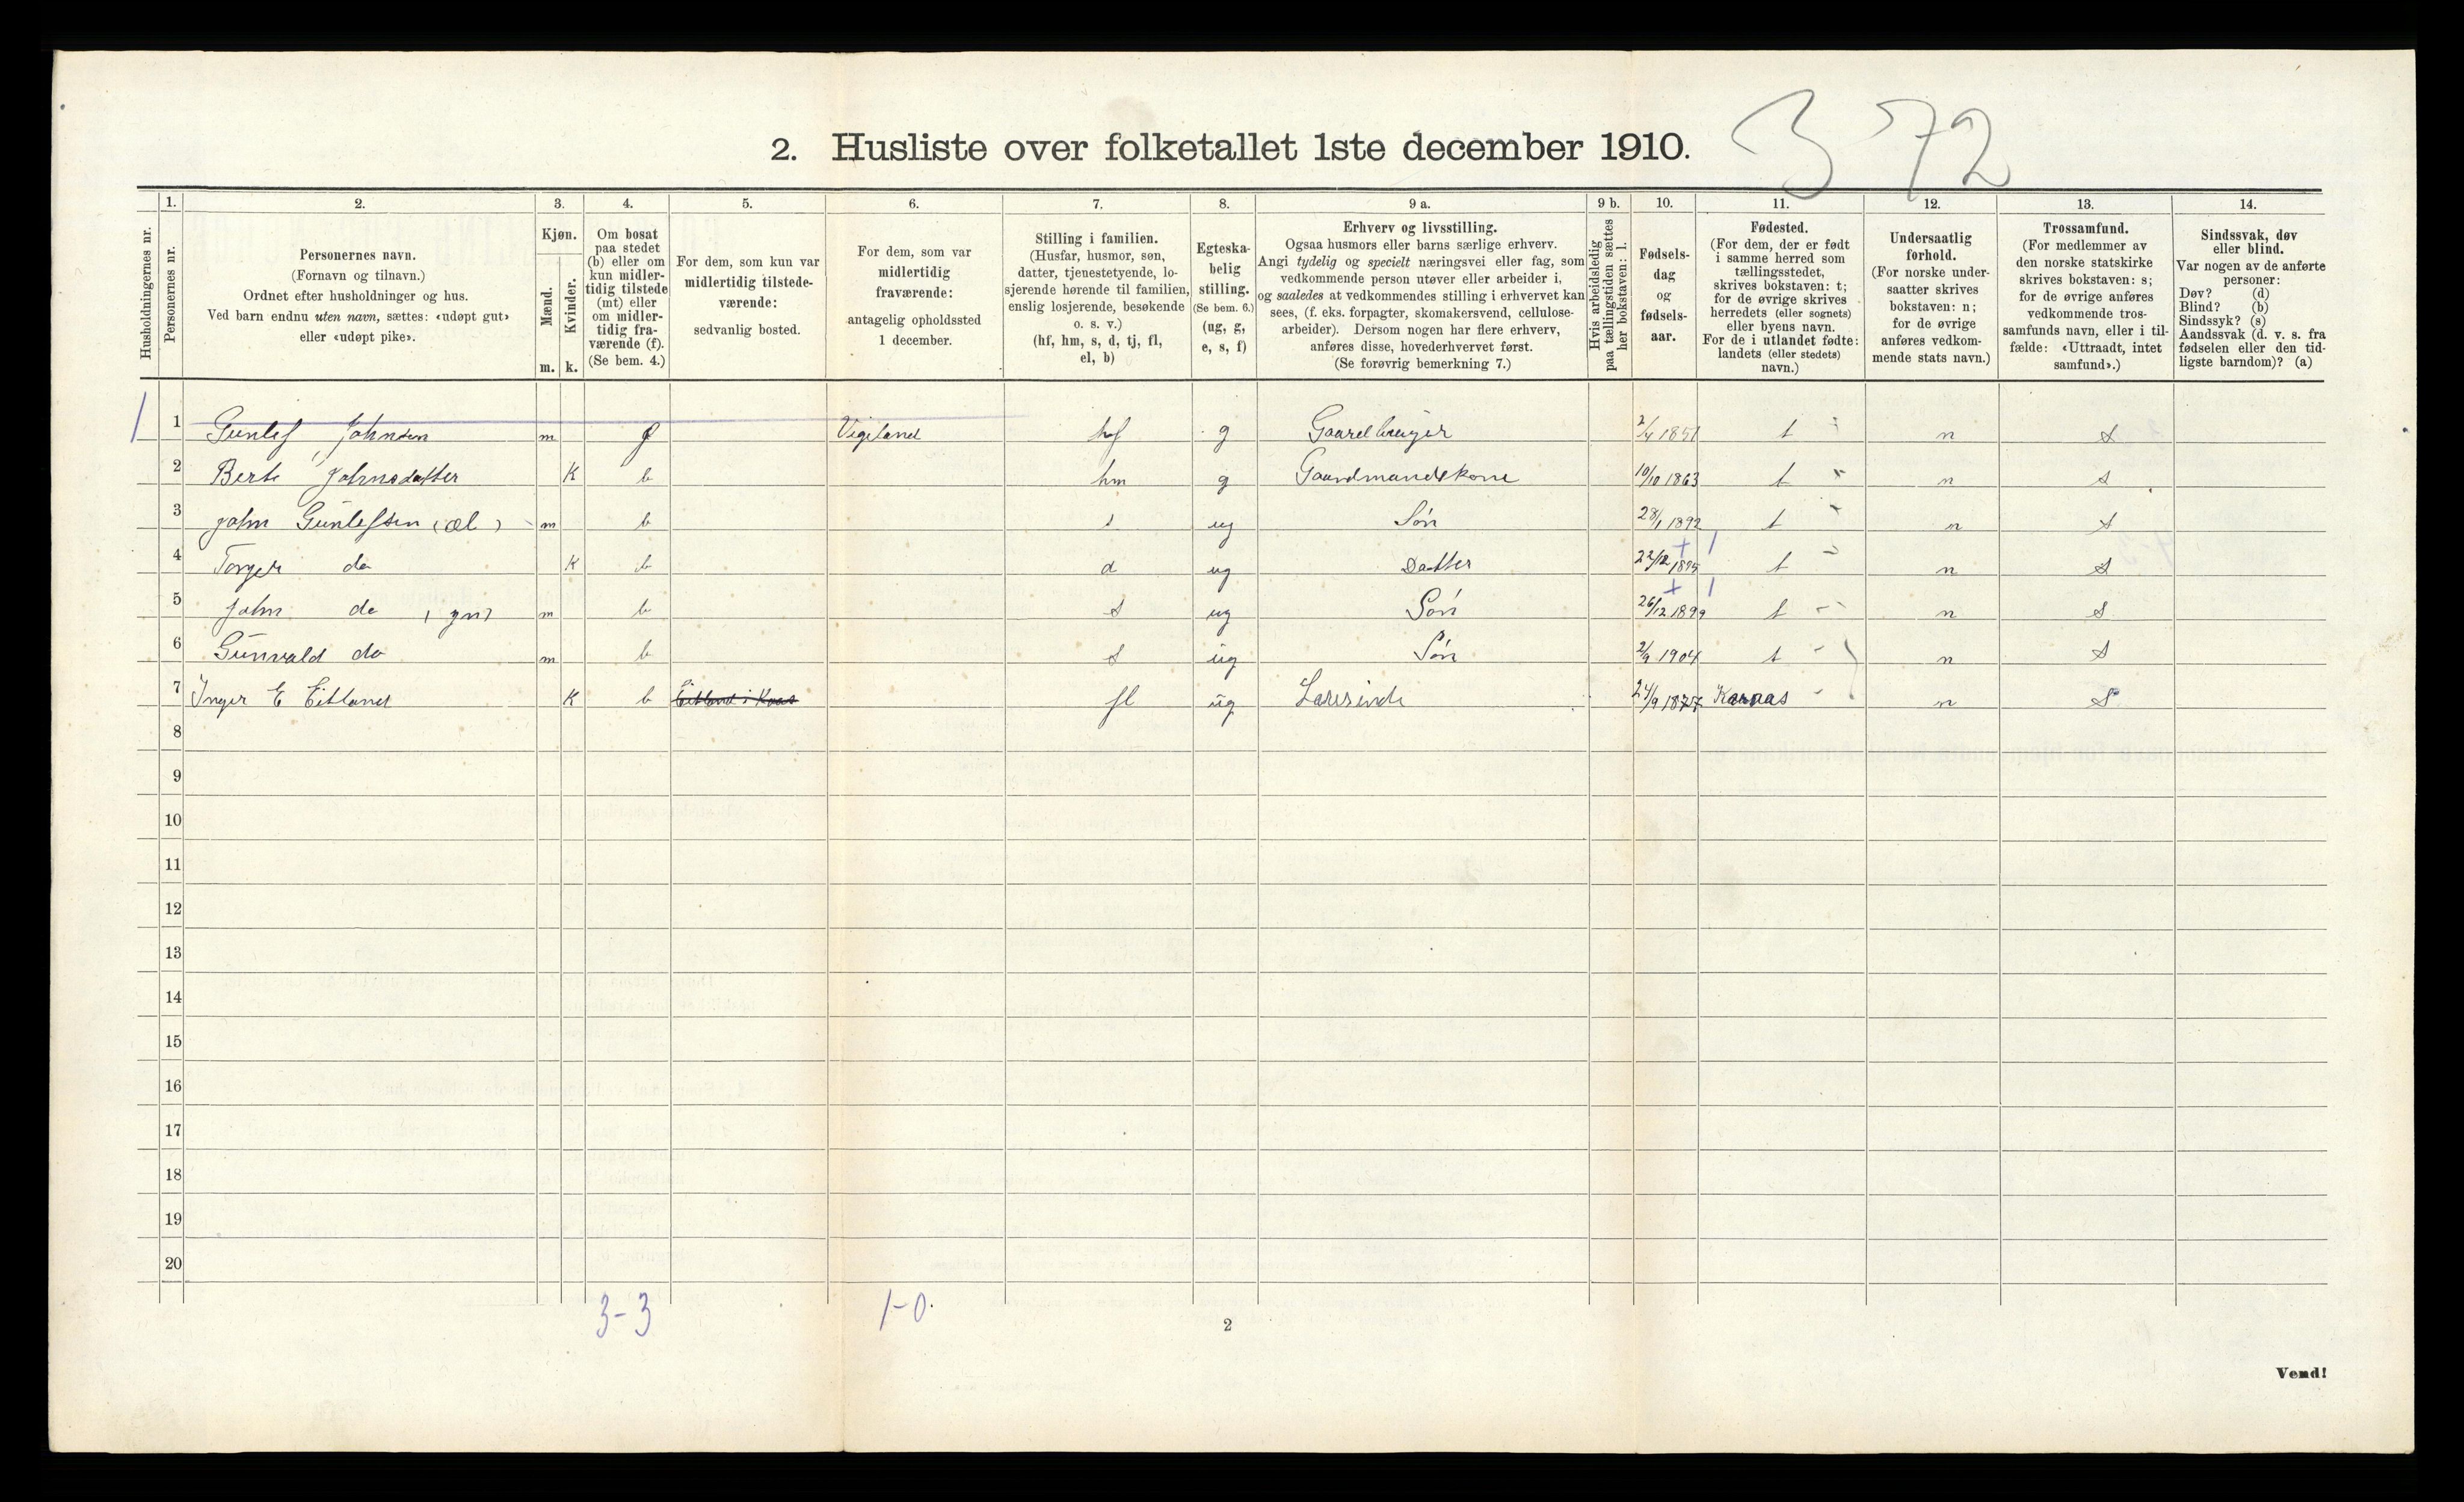 2. Husliste over folketallet 1ste december 1910.
3 72
Husholdningernes nr.
1.
Personernes nr.
2.
Personernes navn.
(Fornavn og tilnavn.)
Ordnet efter husholdninger og hus.
Ved barn endnu uten navn, sættes: «udøpt gut»
eller «udøpt pike».
3.
Kjøn.
Mænd.
Kvinder.
m. k.
4.
Om bosat
paa stedet
(b) eller om
kun midler-
tidig tilstede
(mt) eller
om midler-
tidig fra-
værende (f).
(Se bem. 4.)
5.
For dem, som kun var
midlertidig tilstede-
værende:
sedvanlig bosted.
6.
For dem, som var
midlertidig
fraværende:
antagelig opholdssted
1 december.
7.
Stilling i familien.
(Husfar, husmor, søn,
datter, tjenestetyende, lo-
sjerende hørende til familien,
enslig losjerende, besøkende
o. s. v.)
(hf, hm, s, d, tj, fl,
el, b)
8.
Egteska-
belig
stilling.
(Se bem. 6.)
(ug, g,
e, s, f)
9 a.
Erhverv og livsstilling.
Ogsaa husmors eller barns særlige erhverv.
Angi tydelig og specielt næringsvei eller fag, som
vedkommende person utøver eller arbeider i,
og saaledes at vedkommendes stilling i erhvervet kan
sees, (f. eks. forpagter, skomakersvend, cellulose-
arbeider). Dersom nogen har flere erhverv,
anføres disse, hovederhvervet først.
(Se forøvrig bemerkning 7.)
9 b.
Hvis arbeidsledig
paa tællingstiden sættes
her bokstaven: l.
10.
Fødsels-
dag
og
fødsels-
aar.
11.
Fødested.
(For dem, der er født
i samme herred som
tællingsstedet,
skrives bokstaven: t;
for de øvrige skrives
herredets (eller sognets)
eller byens navn.
For de i utlandet fødte:
landets (eller stedets)
navn.)
12.
Undersaatlig
forhold.
(For norske under-
saatter skrives
bokstaven: n;
for de øvrige
anføres vedkom-
mende stats navn.)
13.
Trossamfund.
(For medlemmer av
den norske statskirke
skrives bokstaven: s;
for de øvrige anføres
vedkommende tros-
samfunds navn, eller i til-
fælde: «Uttraadt, intet
samfund».)
14.
Sindssvak, døv
eller blind.
Var nogen av de anførte
personer:
Døv? (d)
Blind? (b)
Sindssyk? (s)
Aandssvak (d. v. s. fra
fødselen eller den tid-
ligste barndom)? (a)
1 1 Gunlef Johnsen m f Vigeland hf g Gaardbruger 2/4 1851 t n s
2 Berte Johnsdatter K b hm g Gaardmandskone 10/10 1863 t n s
3 John Gunlefsen (æl) m b s ug Søn 28/1 1892 t n s
4 Torger do K b d ug Datter 22/12 1895 t n s
5 John do (yn) m b s ug Søn 26/12 1899 t n s
6 Gunvald do m b s ug Søn 2/9 1904 t n s
7 Inger E Eitland K b Eitland i Kvas fl ug Lærerinde 24/9 1877 n S
8
9
10
11
12
13
14
15
16
17
18
19
20
3-3 1-0
2
Vend!